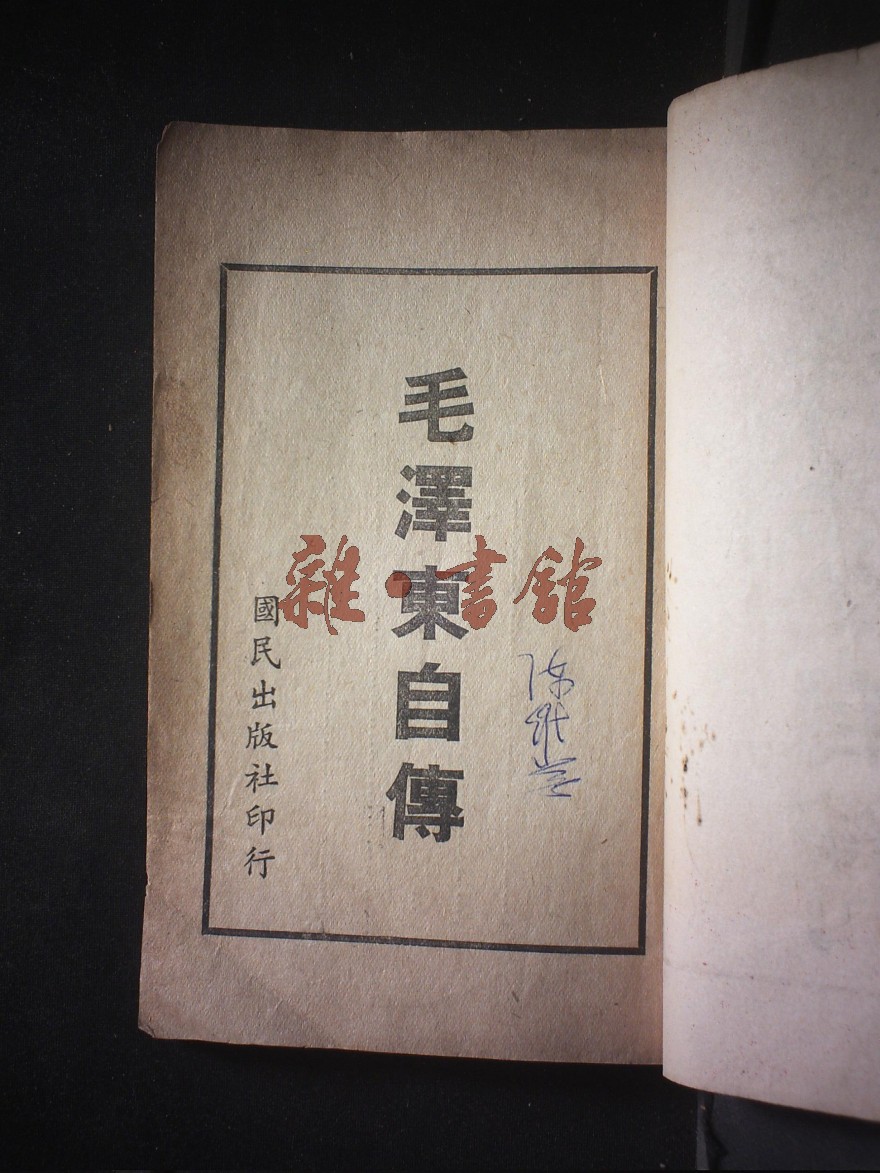 毛澤東自傳
國民出版社印行
雜·書館